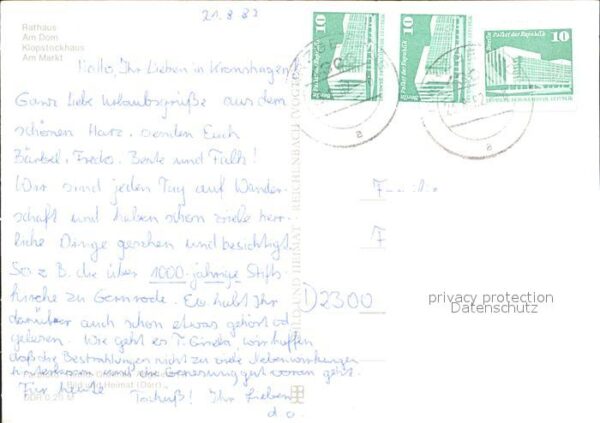 21.8.82
Rathaus
Am Dom
Klopstockhaus
Am Markt
Hallo, Ihr Lieben in Kronshagen!
Ganz liebe Urlaubsgrüße aus dem
schönen Harz, senden Euch
Bärbel, Fredo, Bente und Falk!
Wir sind jeden Tag auf Wander-
schaft und haben schon viele herr-
liche Dinge gesehen und besichtigt.
So z. B. die über 1000-jährige Stifts-
kirche zu Gernrode. Ihr
darüber auch schon etwas gehört od.
gelesen. Wie geht es T. Ginela, wir hoffen
daß die Bestrahlungen nicht zu viele Nebenwirkungen
und die Genesung gut voran geht.
Für heute Tschüß! Ihr Lieben
d. o.
Bild und Heimat (Dört)
DDR 0,20 M
BILD UND HEIMAT · REICHENBACH (VOGTL)
10
Palast der Republik
Berlin
10
Palast der Republik
Berlin
10
Palast der Republik
DEUTSCHE DEMOKRATISCHE REPUBLIK
a
a
F
F
D 2300
privacy protection
Datenschutz